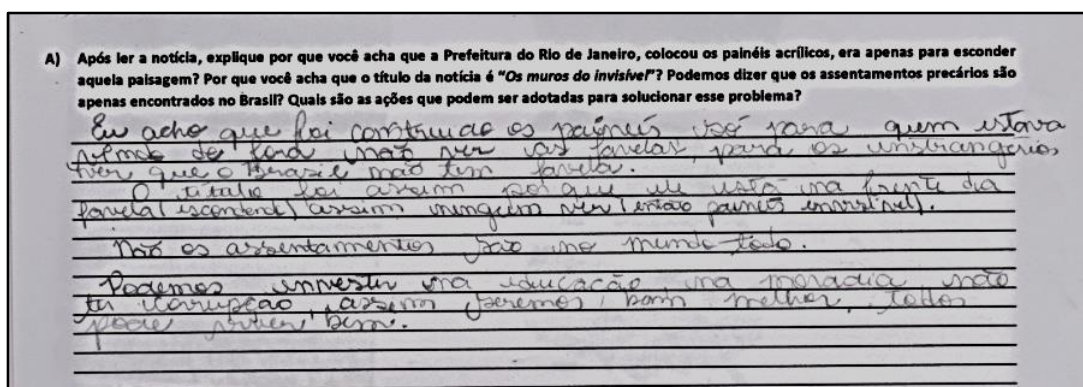 A) Após ler a notícia, explique por que você acha que a Prefeitura do Rio de Janeiro, colocou os painéis acrílicos, era apenas para esconder
aquela paisagem? Por que você acha que o título da notícia é "Os muros do invisível"? Podemos dizer que os assentamentos precários são
apenas encontrados no Brasil? Quais são as ações que podem ser adotadas para solucionar esse problema?
Eu acho que foi construido os painéis só para quem estava
de fora não ver as favelas, para os
ver que o Brasil não tem favela.
O titulo foi assim por que ele está na frente da
favela (escondend) assim ninguem ver (então invisivel).
Não os assentamentos são no mundo todo.
Podemos investir na educação, na moradia não
ter corrupção, assim seremos bem melhor, todos
pode viver bem.